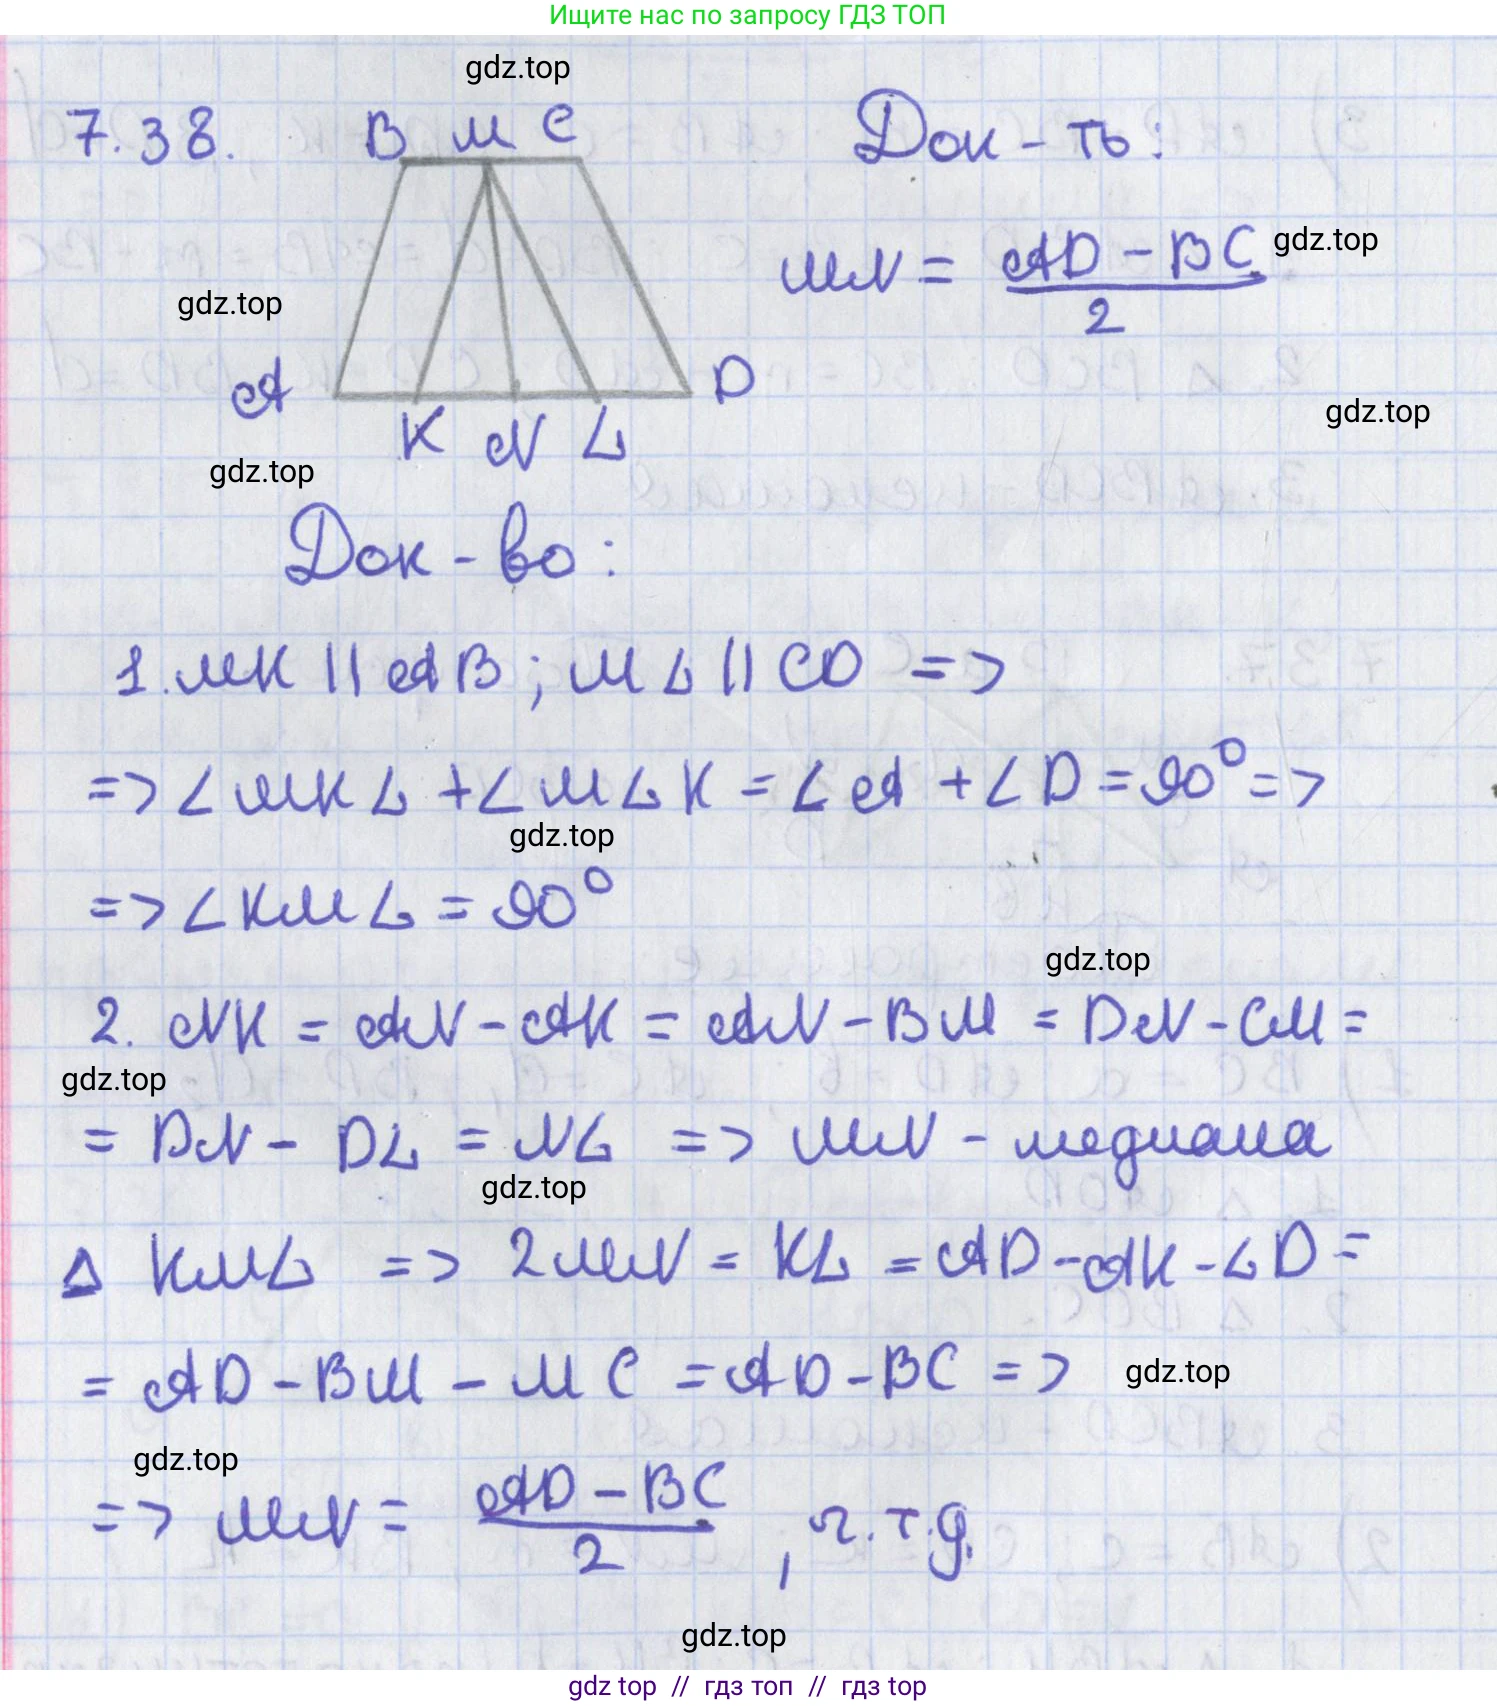 Ищите нас по запросу ГДЗ ТОП
gdz.top
7.38.
B M C
Док-ть:
MN = (AD - BC) / 2
gdz.top
gdz.top
A
D
gdz.top
K N L
gdz.top
Док-во:
1. MK || AB; ML || CD =>
=> ∠MKL + ∠MLK = ∠A + ∠D = 90° =>
gdz.top
=> ∠KML = 90°
gdz.top
2. NK = AN - AK = AN - BM = DN - CM =
gdz.top
= DN - DL = NL => MN - медиана
gdz.top
Δ KML => 2MN = KL = AD - AK - LD =
= AD - BM - MC = AD - BC =>
gdz.top
gdz.top
=> MN = (AD - BC) / 2, ч.т.д.
gdz.top
gdz top // гдз топ // гдз top